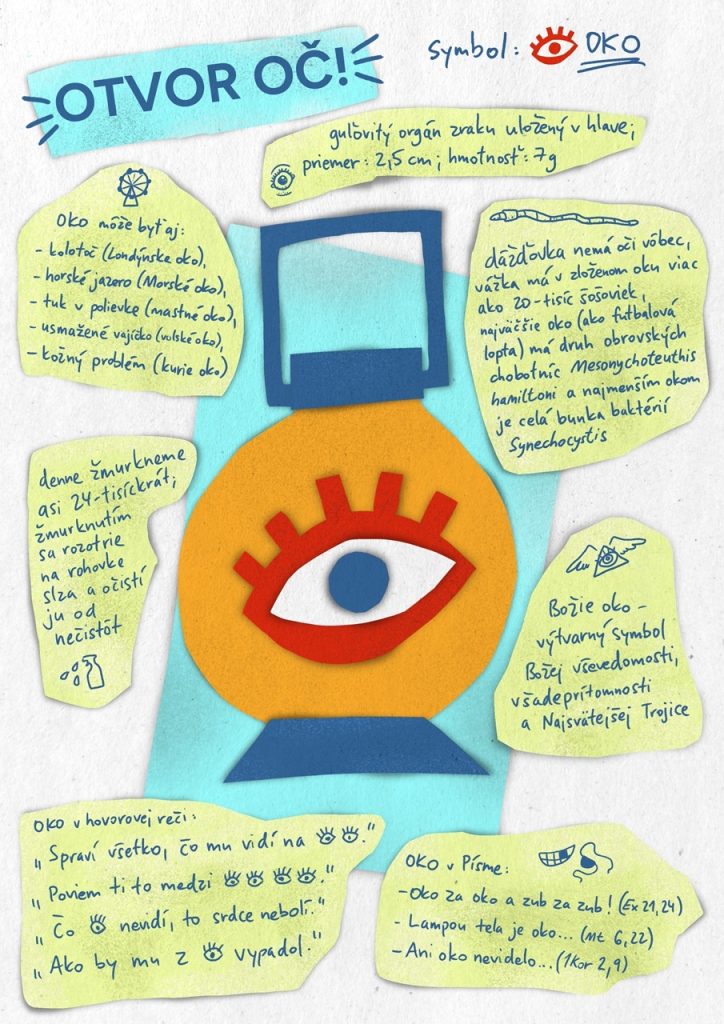 OTVOR OČ!
Symbol: OKO
guľovitý orgán zraku uložený v hlave;
priemer: 2,5 cm; hmotnosť: 7g
OKO môže byť aj:
- kolotoč (Londýnske oko),
- horské jazero (Morské oko),
- tuk v polievke (mastné oko),
- usmažené vajíčko (volské oko),
- kožný problém (kurie oko)
dážďovka nemá oči vôbec,
vážka má v zloženom oku viac
ako 20-tisíc šošoviek,
najväčšie oko (ako futbalová
lopta) má druh obrovských
chobotníc Mesonychoteuthis
hamiltoni a najmenším okom
je celá bunka baktérií
Synechocystis
denne žmurkneme
asi 24-tisíckrát;
žmurknutím
sa rozotrie
na rohovke
slza a očistí
ju od
nečistôt
Božie oko -
výtvarný symbol
Božej vševedomosti,
všadeprítomnosti
a Najsvätejšej Trojice
OKO v hovorovej reči:
„Spraví všetko, čo mu vidí na."
„Poviem ti to medzi."
„Čo nevidí, to srdce nebolí."
„Ako by mu z vypadol."
OKO v Písme:
- Oko za oko a zub za zub! (Ex 21,24)
- Lampou tela je oko... (Mt 6,22)
- Ani oko nevidelo... (1Kor 2,9)